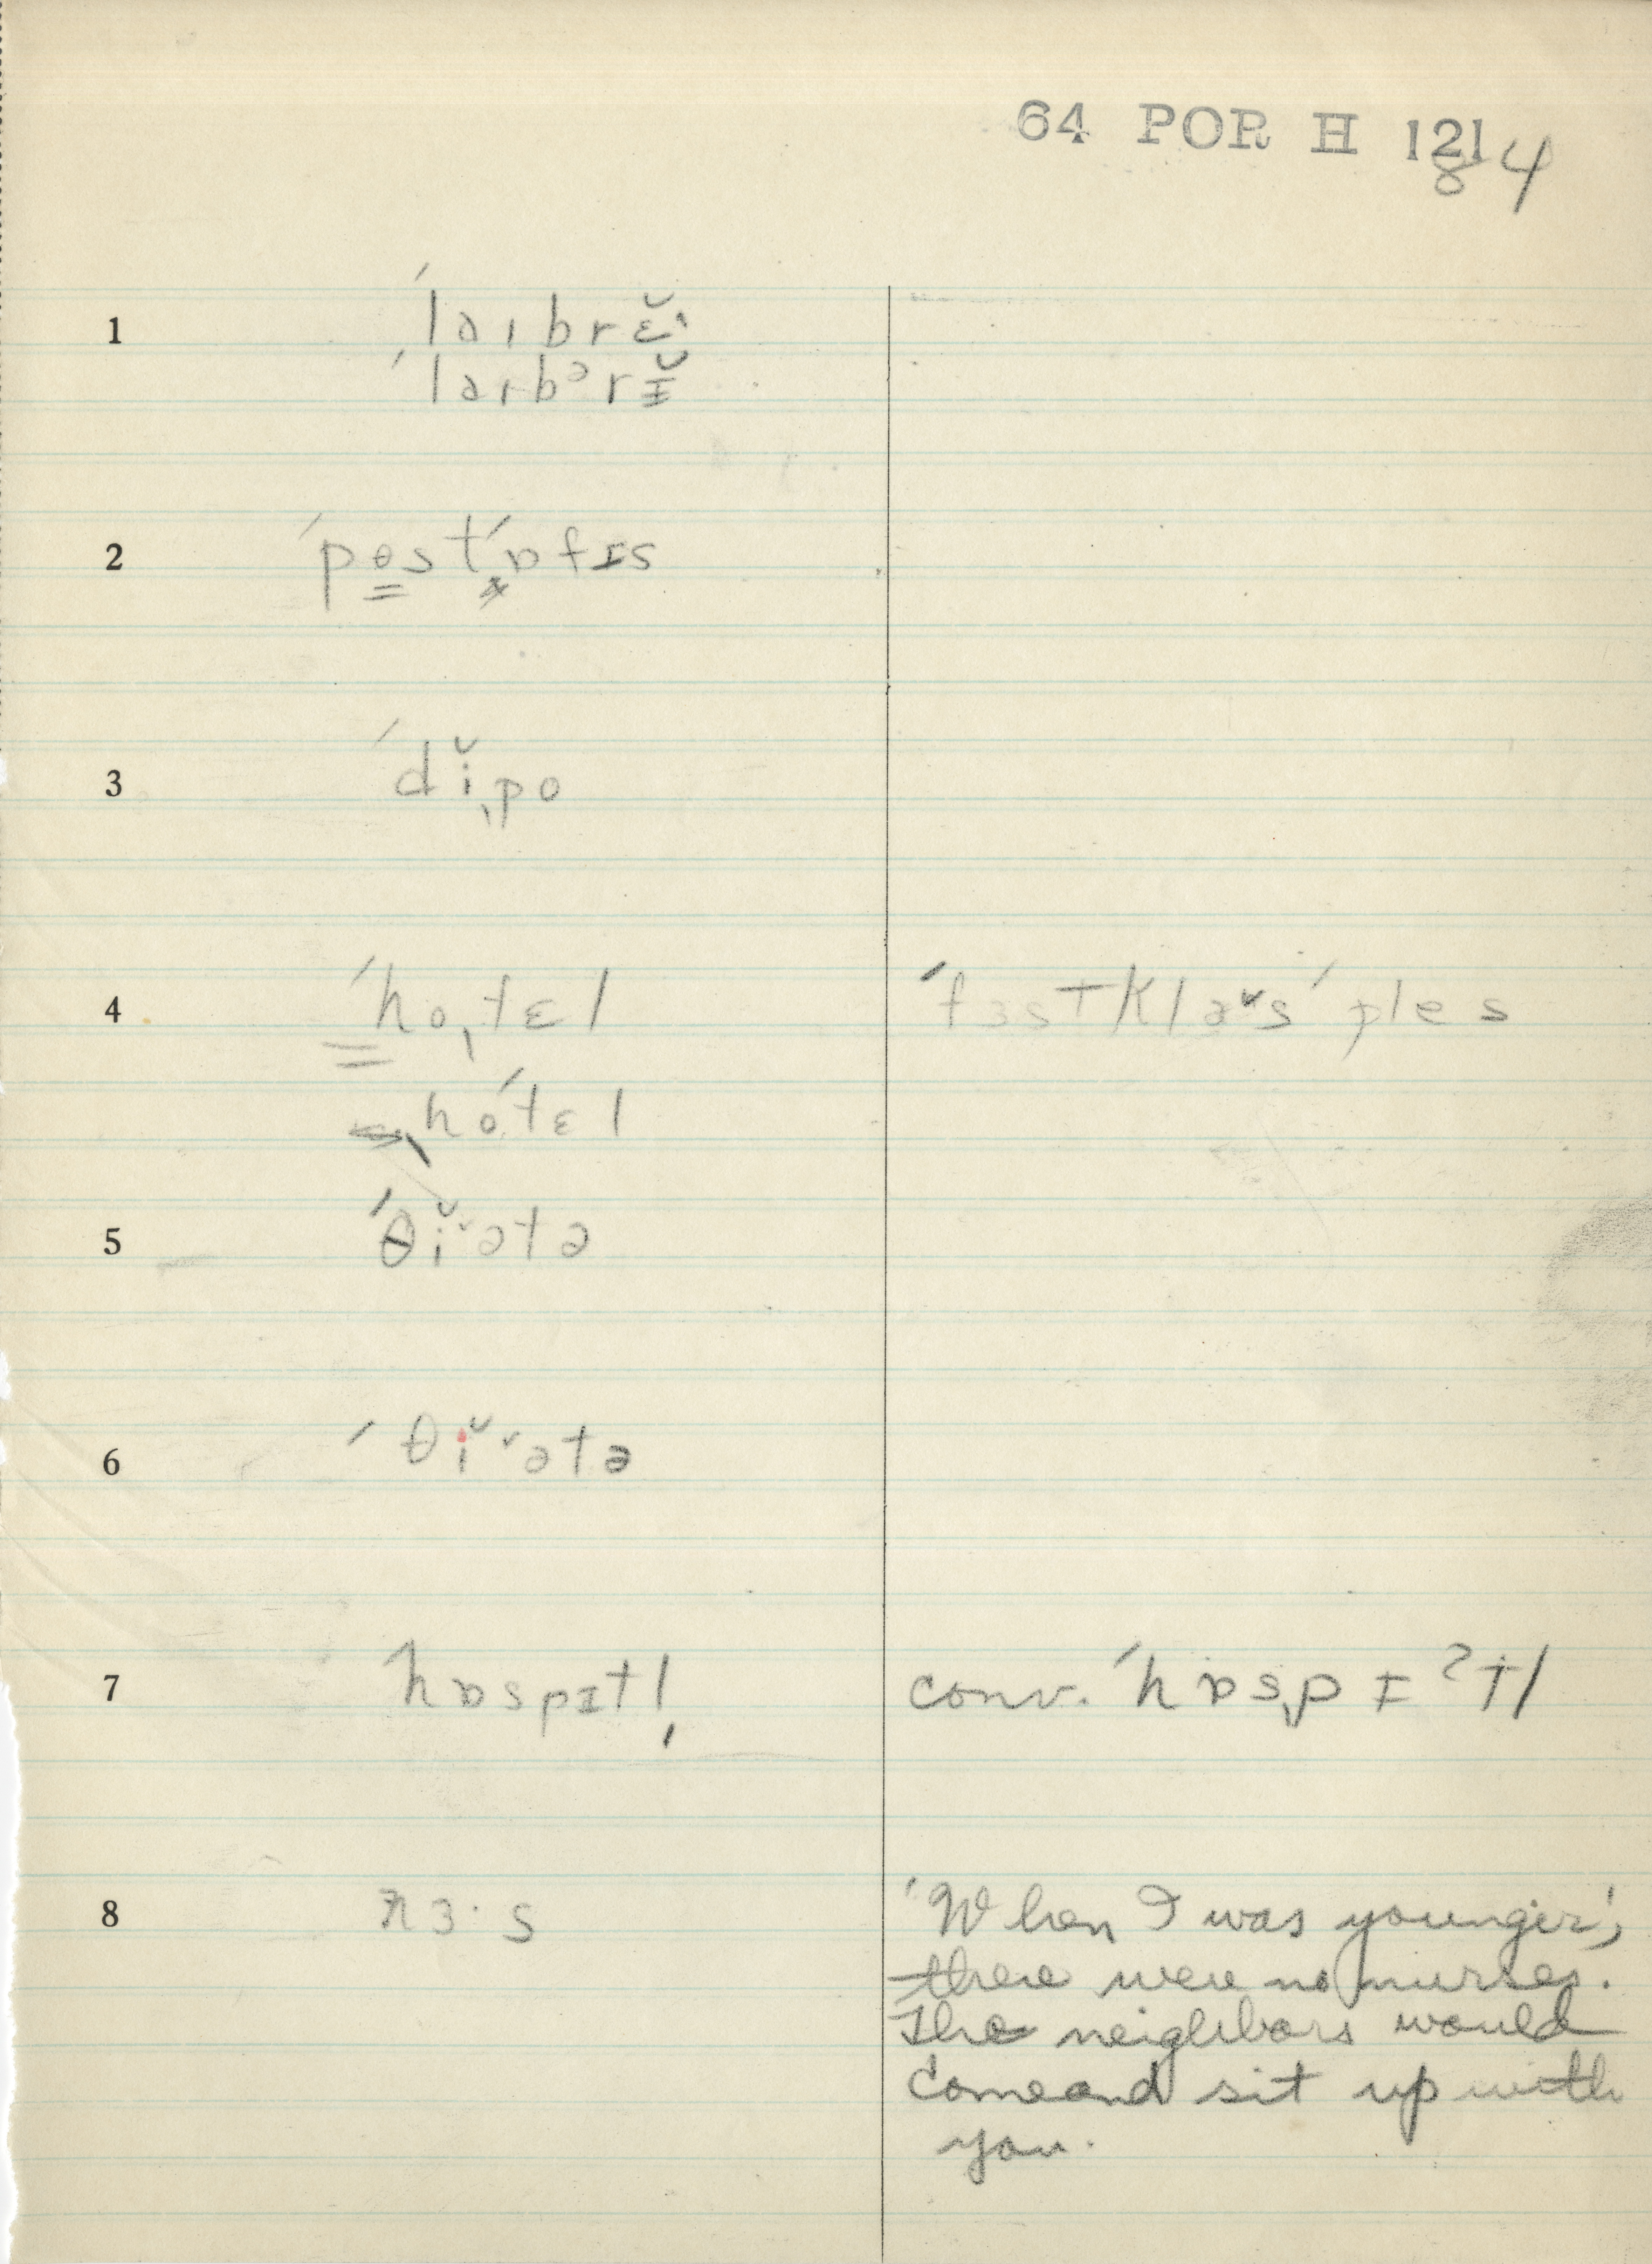 64 POR H 121
84
1 ˈlaɪbrɛ̆ɪ
ˈlaɪbᵊrɪ̆
2 ˈpɵstˈɒfɪs
3 ˈdĭˌpo
4 ˈhoˌtɛl ˈfɜstklaˇsˈples
ˌhoˈtɛl
5 ˈθĭˇətə
6 ˈθĭˇətə
7 ˈhɒspɪtl̩ conv. ˈhɒsˌpɪˀtl
8 nɜ·s 'When I was younger',
there were no nurses.
The neighbors would
come and sit up with
you.